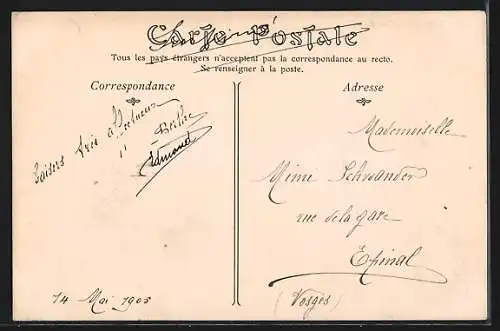 Carte Postale
Tous les pays étrangers n'acceptent pas la correspondance au recto.
Se renseigner à la poste.
Correspondance
Adresse
Baisers
Berthe
Edmond
14 Mai 1905
Mademoiselle
Mime Schwander
rue de la gare
Epinal
(Vosges)